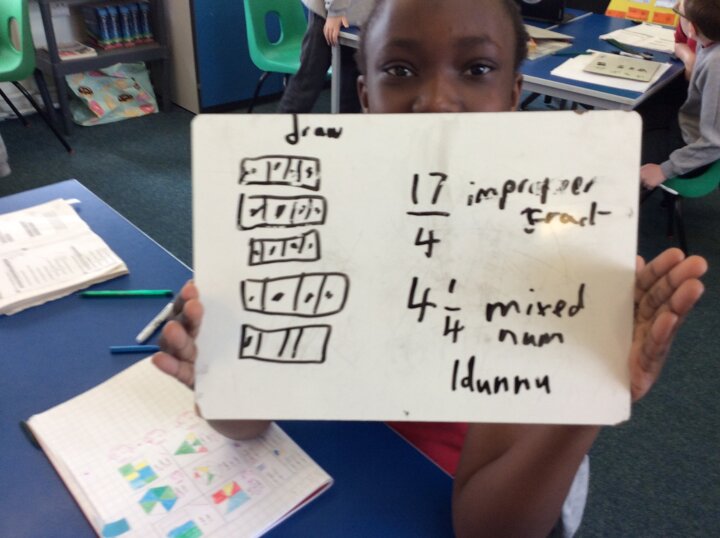 draw
17/4 improper
fract
4 1/4 mixed
num